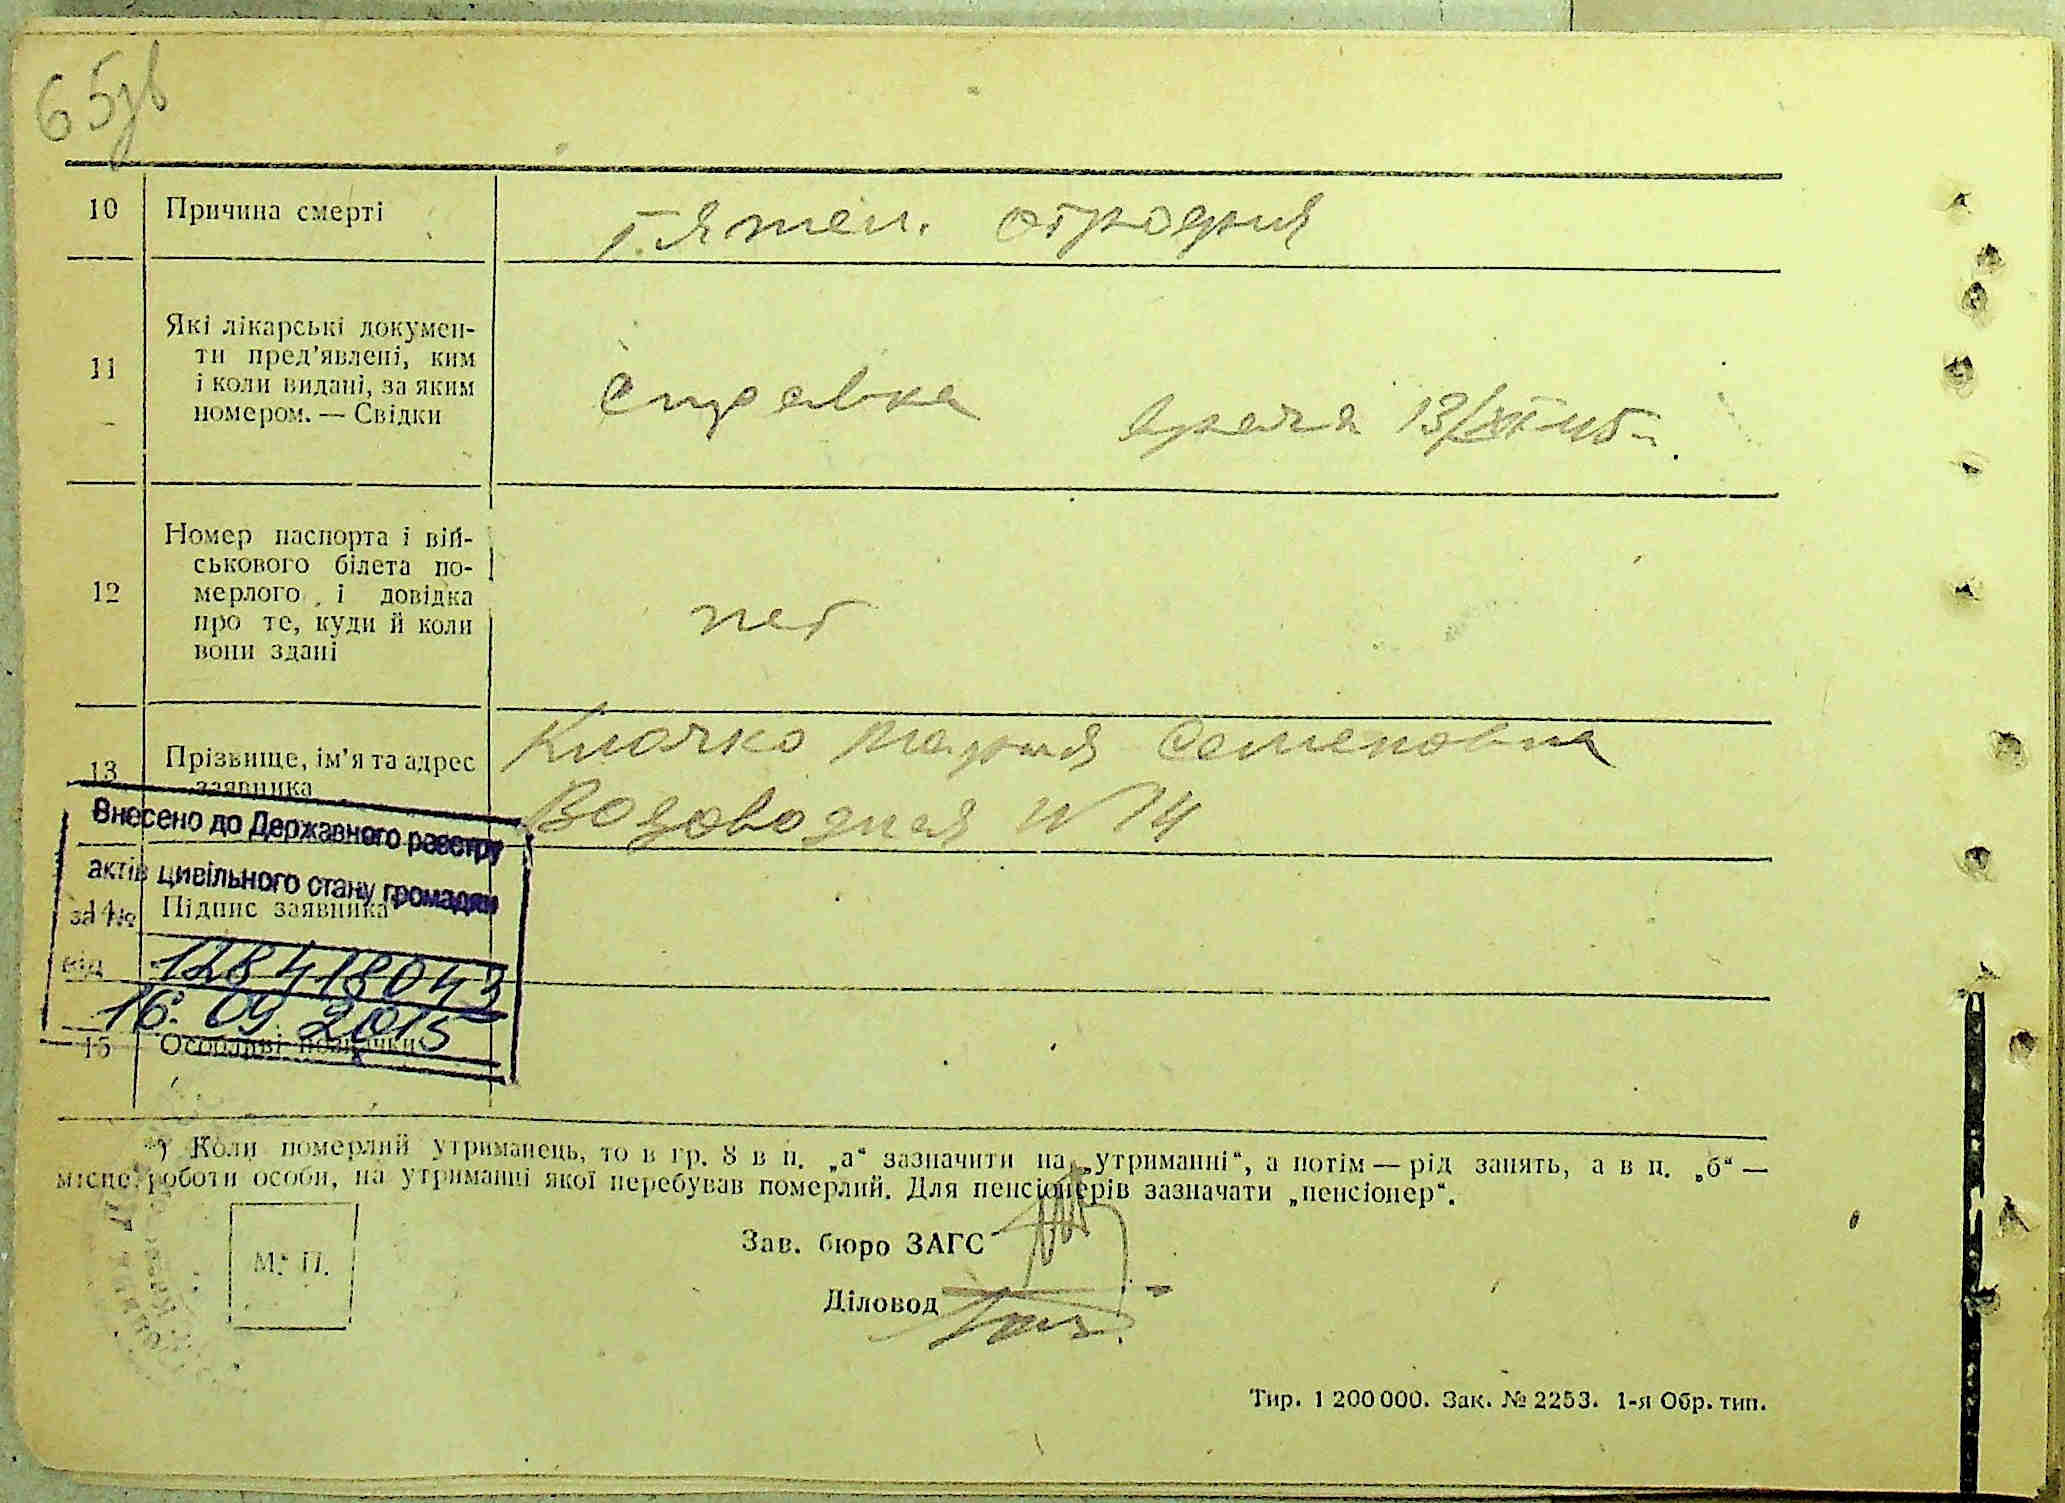 65зв
10 Причина смерті
Тяжел.
11 Які лікарські докумен-
ти пред'явлені, ким
і коли видані, за яким
номером. — Свідки
справка врача 13/XII-45г.
12 Номер паспорта і вій-
ськового білета по-
мерлого і довідка
про те, куди й коли
вони здані
нет
13 Прізвище, ім'я та адрес
заявника
Клочко Мария Семеновна
Водоводная N 14
Внесено до Державного реєстру
актів цивільного стану громадян
за №
128418043
від
16.09 2015
14 Підпис заявника
15 Особливі позначки
*) Коли померлий утриманець, то в гр. 8 в п. „а“ зазначити на „утриманні“, а потім — рід занять, а в п. „б“ —
місце роботи особи, на утриманні якої перебував померлий. Для пенсіонерів зазначати „пенсіонер“.
М. П.
Зав. бюро ЗАГС
Діловод
Тир. 1 200 000. Зак. № 2253. 1-я Обр. тип.